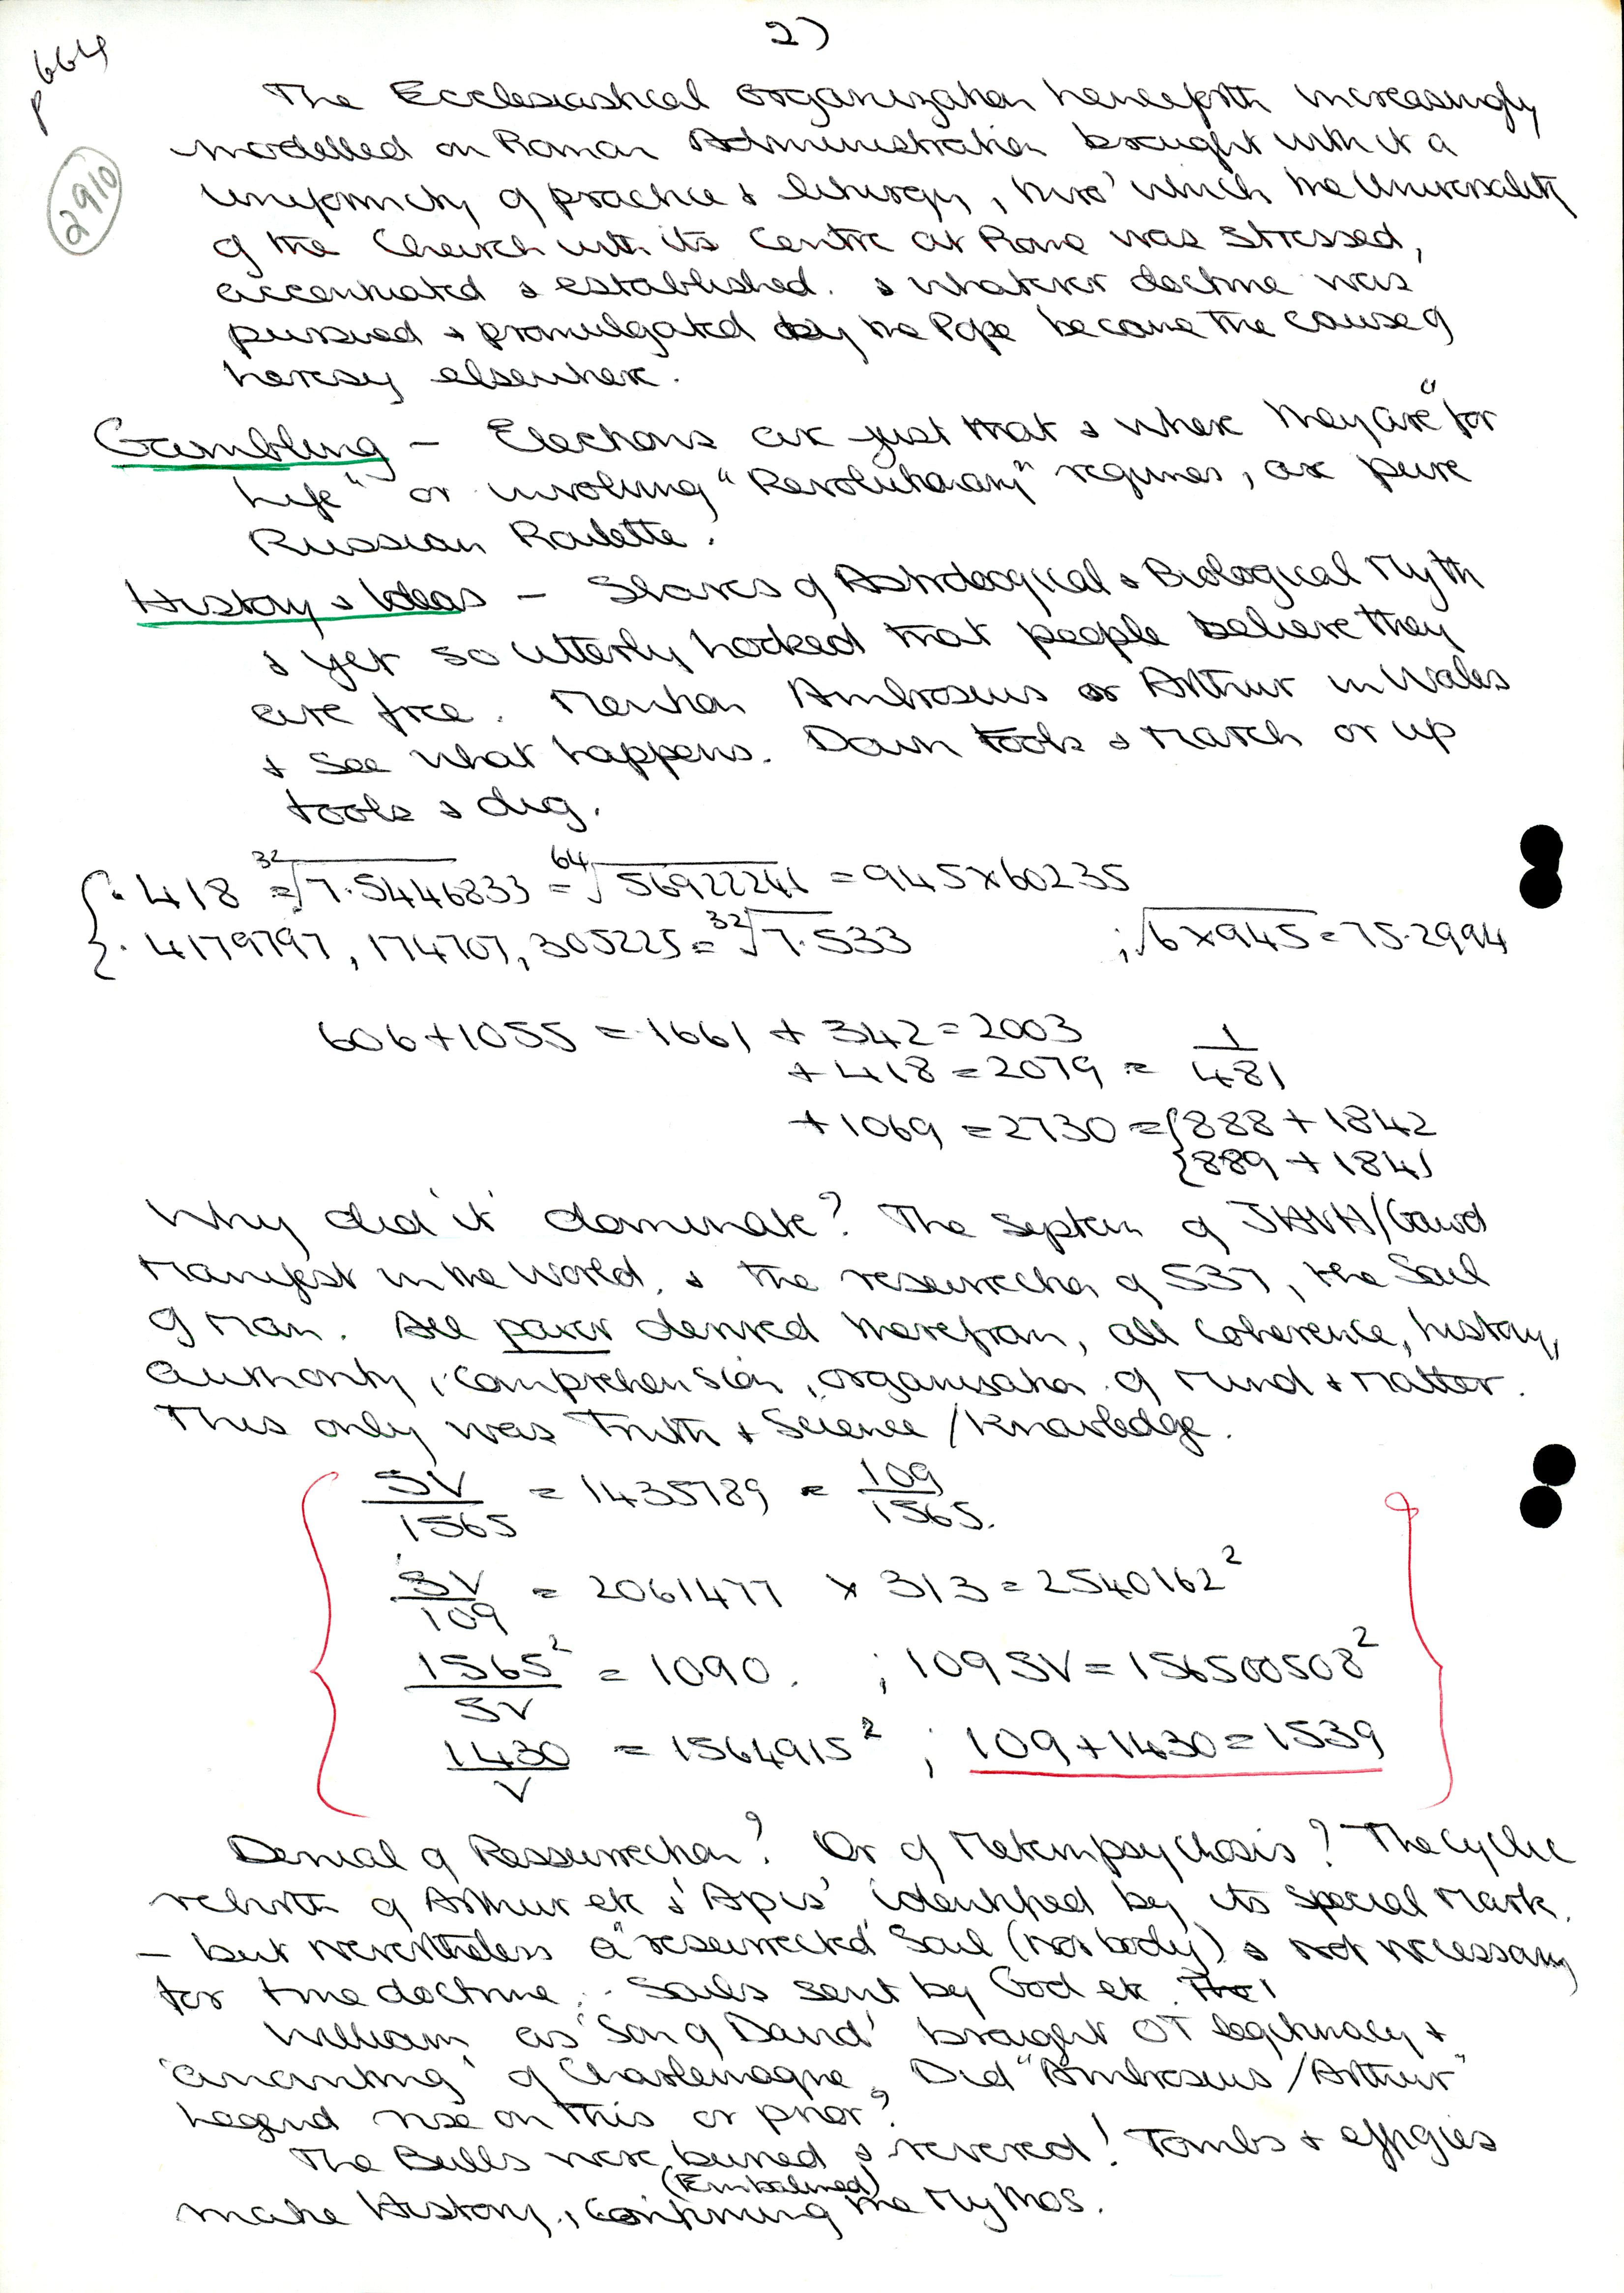 2)
p 664
2910
The Ecclesiastical Organization henceforth increasingly
modelled on Roman Administration brought with it a
Uniformity of practice & liturgy, thro' which the Universality
of the Church with its Centre at Rome was stressed,
accentuated & established. & whatever doctrine was
pursued & promulgated by the Pope became the cause of
heresy elsewhere.
Gambling - Elections are just that & where they are "for
Life" or involving "Revolutionary" regimes, are pure
Russian Roulette.
History & Ideas - Slaves of Astrological & Biological Myth
& yet so utterly hooked that people believe they
are free. Mention Ambrosius or Arthur in Wales
& see what happens. Down tools & March or up
tools & dig.
{ .418 = ³²√7.5446833 = ⁶⁴√56922241 = 945 x 60235
{ .4179797, 174707, 305225 = ³²√7.533 ; √6x945 = 75.2994
606 + 1055 = 1661 + 342 = 2003
+ 418 = 2079 = 1/481
+ 1069 = 2730 = { 888 + 1842
{ 889 + 1841
Why did 'it' dominate? The System of JHVH/
Manifest in the World, & the resurrection of 537, the Soul
of Man. All power derived therefrom, all coherence, history,
authority, comprehension, organisation of Mind & Matter.
This only was Truth & Science/Knowledge.
SV/1565 = 1435789 = 109/1565.
SV/109 = 2061477 x 313 = 2540162²
1565²/SV = 1090. ; 109SV = 156500508²
1430/V = 1564915² ; 109 + 1430 = 1539
Denial of Ressurrection? Or of Metempsychosis? The cyclic
rebirth of Arthur etc & 'Apis' identified by its special Mark.
- but nevertheless a "resurrected" Soul (not body) & not necessary
for true doctrine. - Souls sent by God etc.
William as 'Son of David' brought OT legitimacy &
'anointing' of Charlemagne. Did "Ambrosius/Arthur"
Legend rise on this or prior?
The Bulls were buried & revered! Tombs & effigies
(Embalmed)
make History, confirming the Mythos.